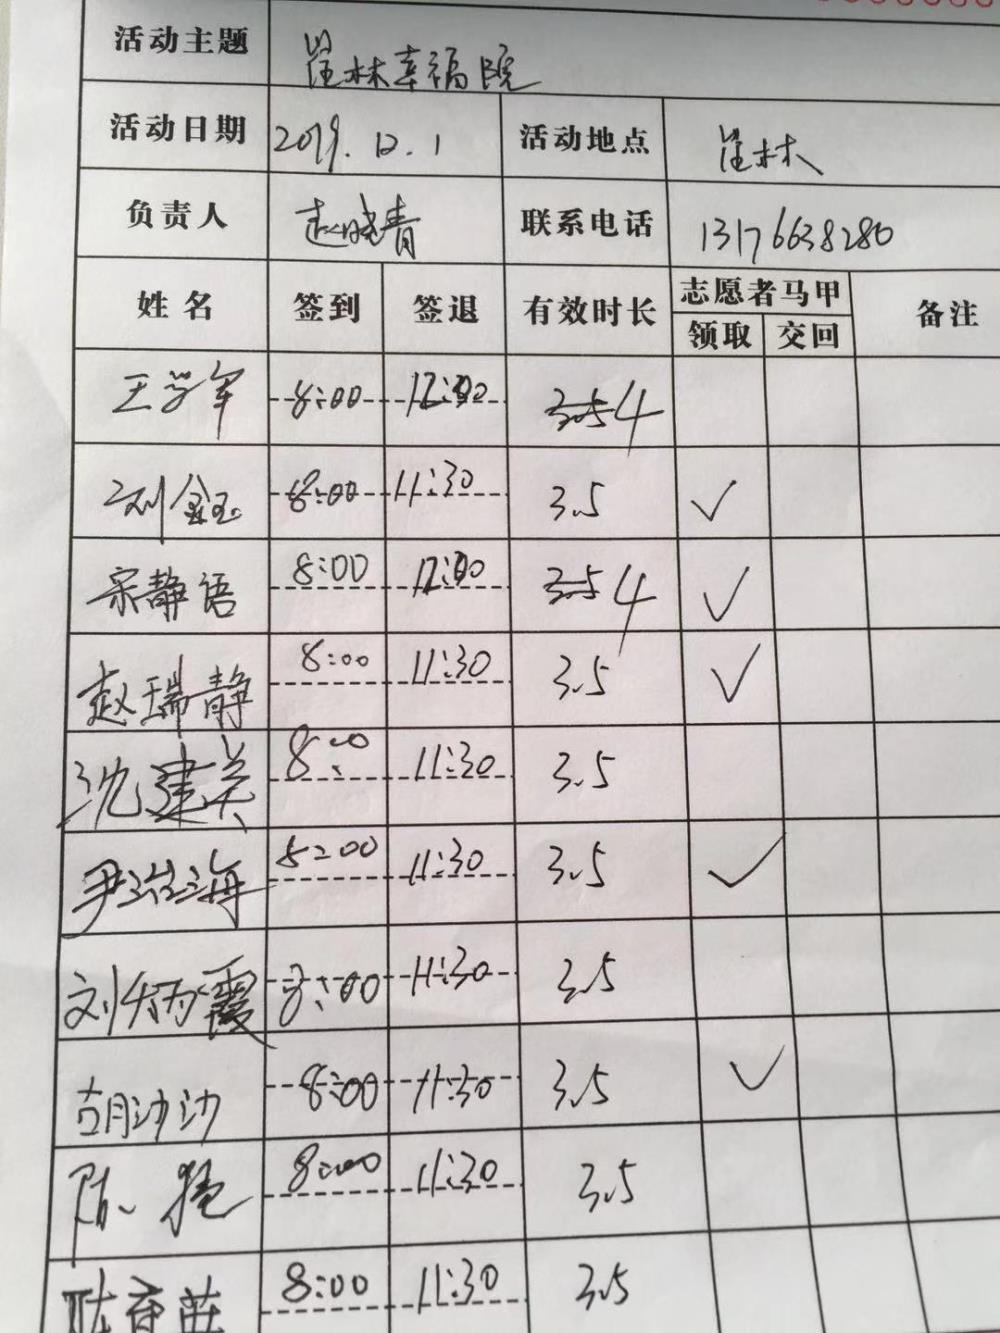 活动主题 崔林幸福院
活动日期 2019.12.1 活动地点 崔林
负责人 赵晓青 联系电话 13176638280
姓名 签到 签退 有效时长 志愿者马甲 备注
领取 交回
王学军 8:00 12:00 3.5 4
刘鑫 8:00 11:30 3.5 ✓
宋静语 8:00 12:00 3.5 4 ✓
赵瑞静 8:00 11:30 3.5 ✓
沈建美 8:00 11:30 3.5
尹 海 8:00 11:30 3.5 ✓
刘炳霞 8:00 11:30 3.5
胡沙沙 8:00 11:30 3.5 ✓
陈 8:00 11:30 3.5
8:00 11:30 3.5